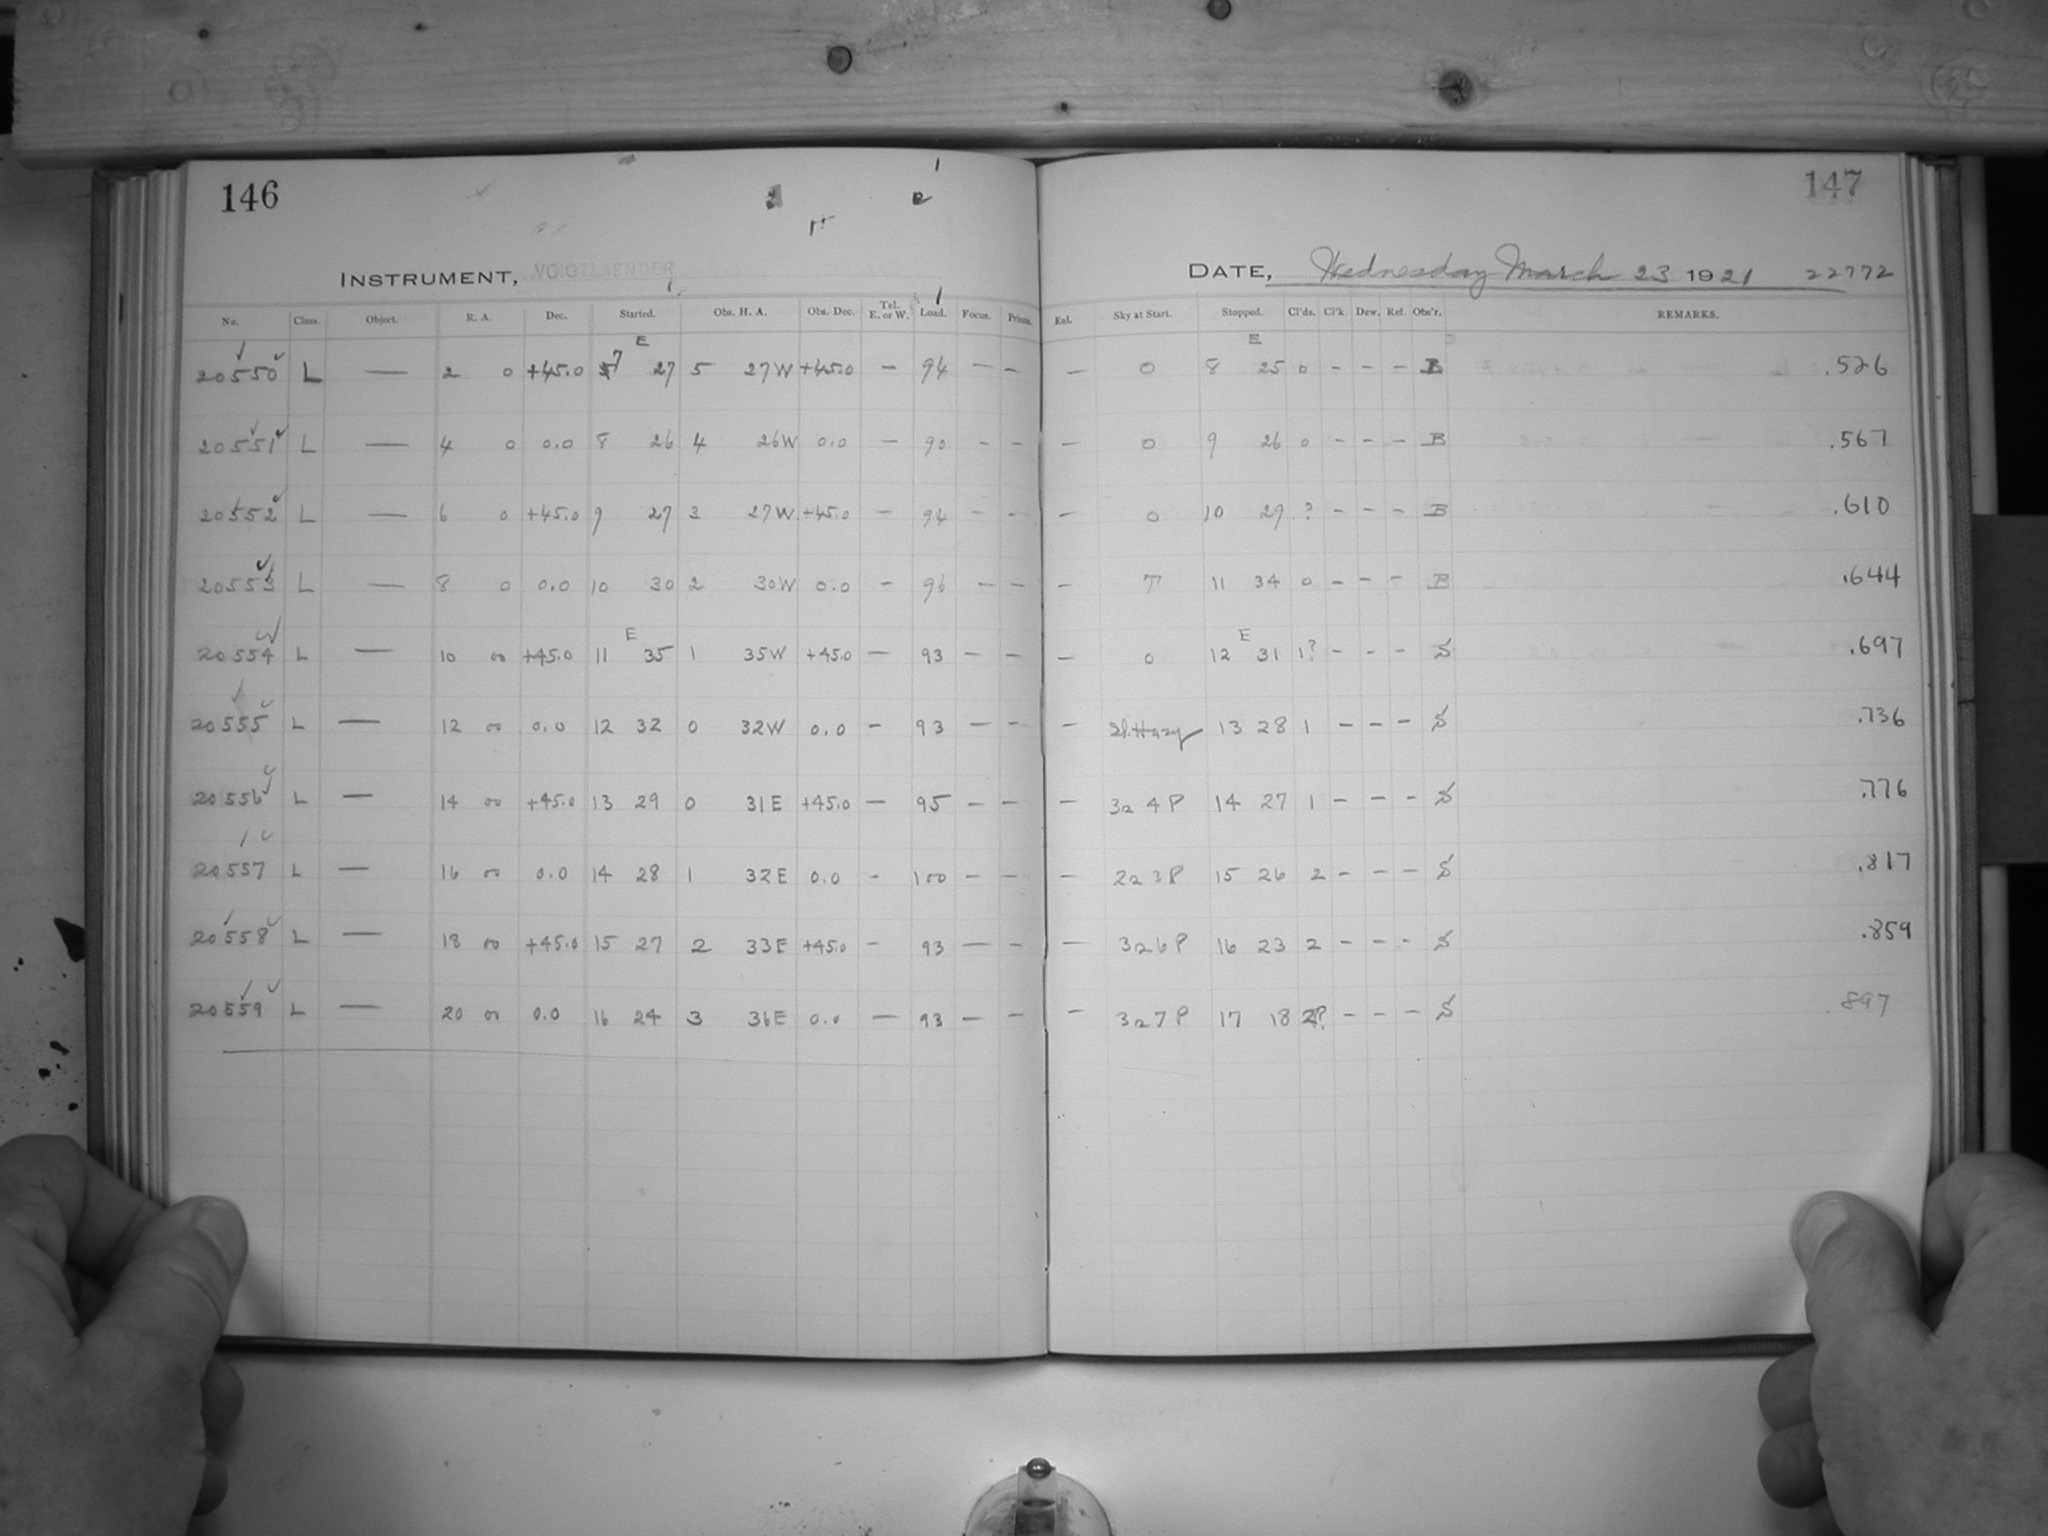 146
INSTRUMENT, VOIGTLAENDER
No. Class. Object. R. A. Dec. Started. Obs. H. A. Obs. Dec. Tel. E. or W. Load. Focus. Prisms.
E
20550 L — 2 0 +45.0 7 27 5 27W +45.0 — 94 — —
20551 L — 4 0 0.0 8 26 4 26W 0.0 — 90 – –
20552 L — 6 0 +45.0 9 27 3 27W +45.0 — 94 — —
20553 L — 8 0 0.0 10 30 2 30W 0.0 – 96 – –
E
20554 L — 10 00 +45.0 11 35 1 35W +45.0 — 93 – –
20555 L — 12 00 0.0 12 32 0 32W 0.0 – 93 – –
20556 L — 14 00 +45.0 13 29 0 31E +45.0 — 95 – –
20557 L — 16 00 0.0 14 28 1 32E 0.0 - 100 – –
20558 L — 18 00 +45.0 15 27 2 33E +45.0 - 93 — –
20559 L — 20 00 0.0 16 24 3 36E 0.0 — 93 – –
147
DATE, Wednesday March 23 1921 22772
Enl. Sky at Start. Stopped. Cl'ds. Cl'k Dew. Ref. Obs'r. REMARKS.
E
— 0 8 25 0 – – – B .526
— 0 9 26 0 – – – B .567
— 0 10 29 ? – – – B .610
— 11 34 0 – – – B .644
E
— 0 12 31 1? – – – S .697
— Sl. Hazy 13 28 1 – – – S .736
— 3a 4P 14 27 1 – – – S .776
— 2a 3P 15 26 2 – – – S .817
— 3a 6P 16 23 2 – – – S .859
— 3a 7P 17 18 2? – – – S .897